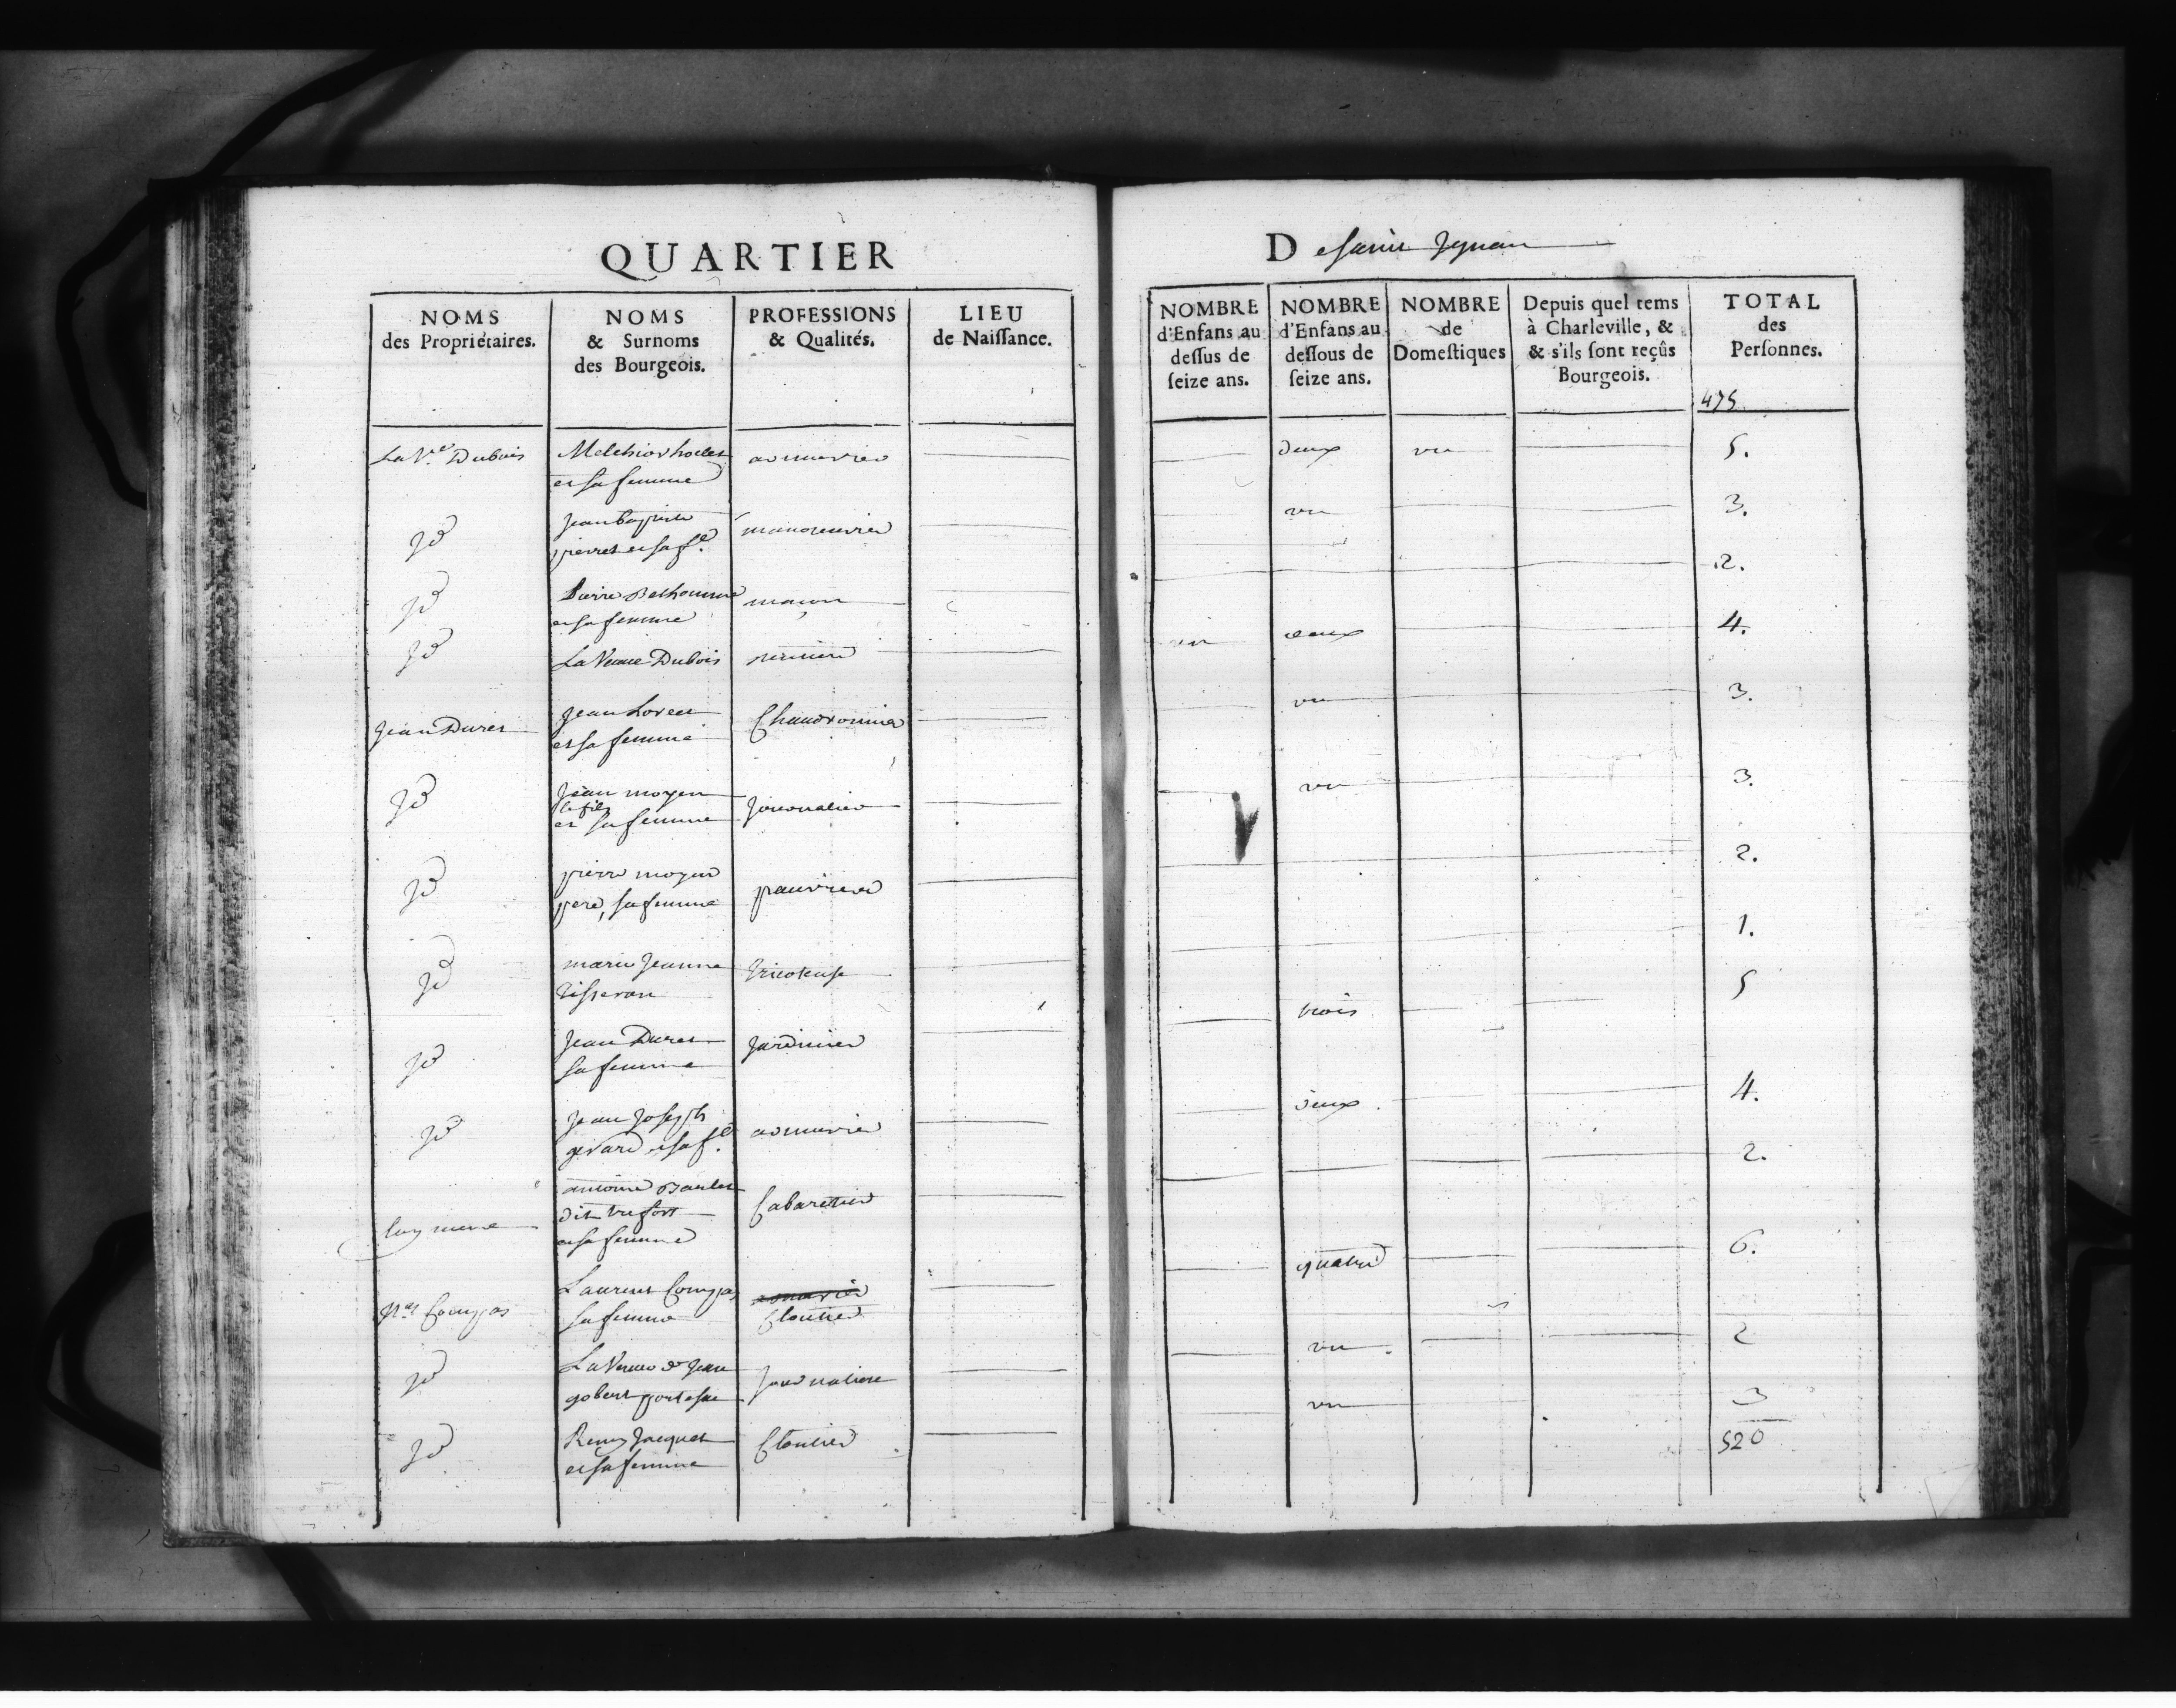 QUARTIER
NOMS
des Propriétaires.
NOMS
& Surnoms
des Bourgeois.
PROFESSIONS
& Qualités.
LIEU
de Naissance.
La Ve. Dubois
Melchior
armurier
et sa femme
Jd
Jean baptiste
manoeuvrier
pierret et sa fe.
Jd
Pierre Bethomme
maçon
et sa femme
Jd
La Veuve Dubois
Jean Duret
Jean Loret
Chaudronnier
et sa femme
Jd
Jean moyen
le fils
et sa femme
Journalier
Jd
pierre moyen
pere, sa femme
pauvre
Jd
marie Jeanne
Tisseran
tricoteuse
Jd
Jean Duret
sa femme
Jardinier
Jd
Jean Joseph
gerard et sa fe.
armurier
luy meme
antoine
dit trefort
et sa femme
Cabaretier
Compas
Laurent Compas
sa femme
Cloutier
Jd
La Veuve de Jean
gobert
Journaliere
Jd
Remy Jacquet
et sa femme
Cloutier
D e saint Ignace
NOMBRE
d'Enfans au
dessus de
seize ans.
NOMBRE
d'Enfans au
dessous de
seize ans.
NOMBRE
de
Domestiques
Depuis quel tems
à Charleville, &
& s'ils sont reçûs
Bourgeois.
TOTAL
des
Personnes.
475
deux un 5.
un 3.
2.
un deux 4.
un 3.
un 3.
2.
1.
trois 5
deux 4.
2.
quatre 6.
un 2
un 3
520